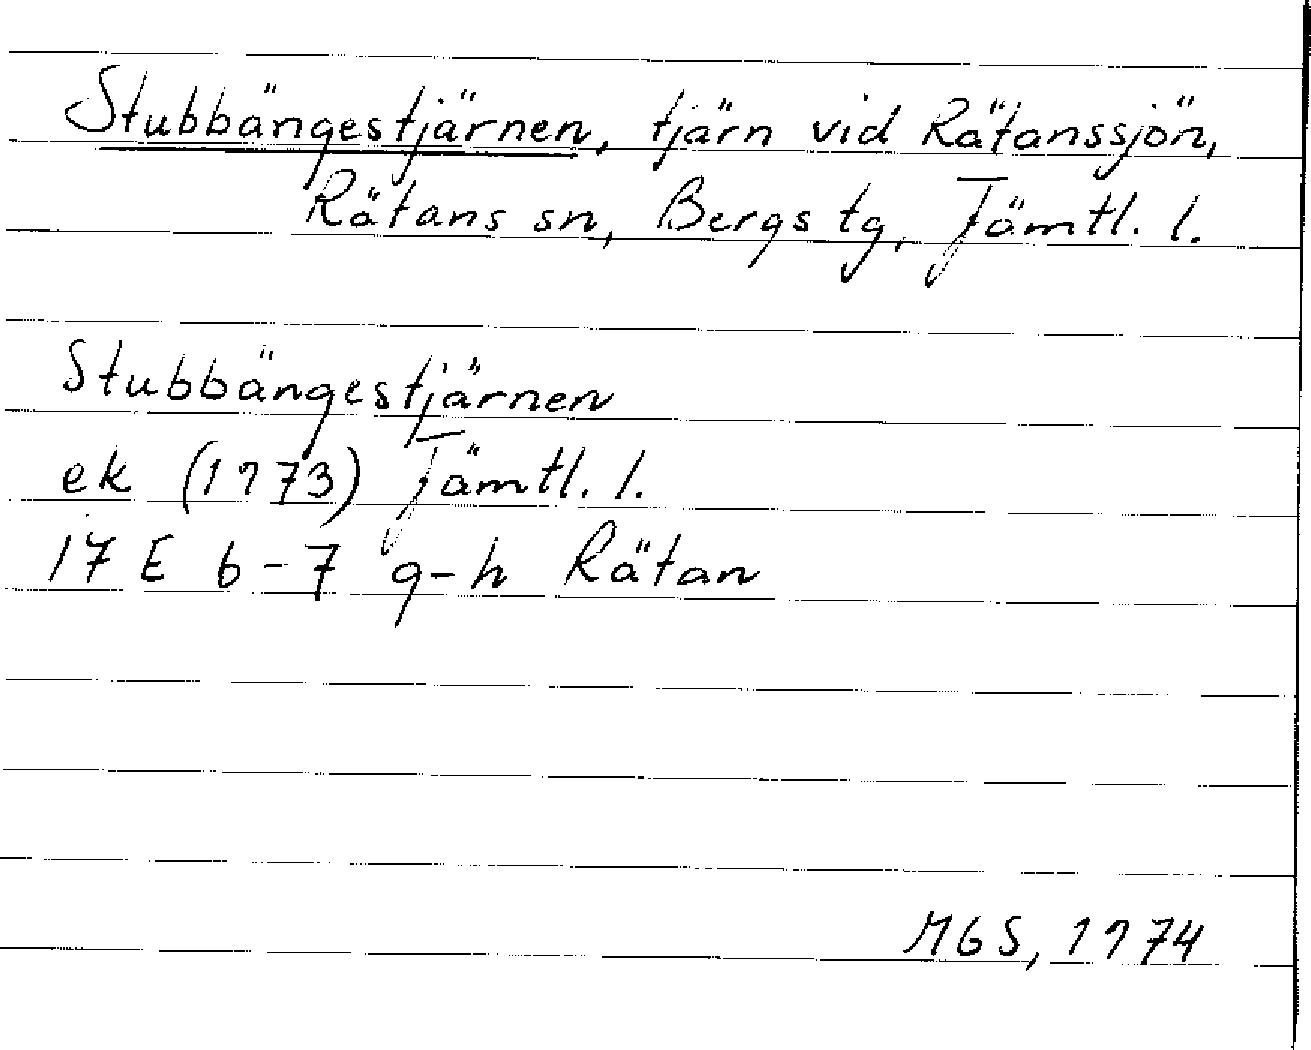 Stubbängestjärnen, tjärn vid Rätanssjön,
Rätans sn, Bergs tg, Jämtl. l.
Stubbängestjärnen
ek (1973) Jämtl. l.
17 E 6-7 g-h Rätan
MGS, 1974